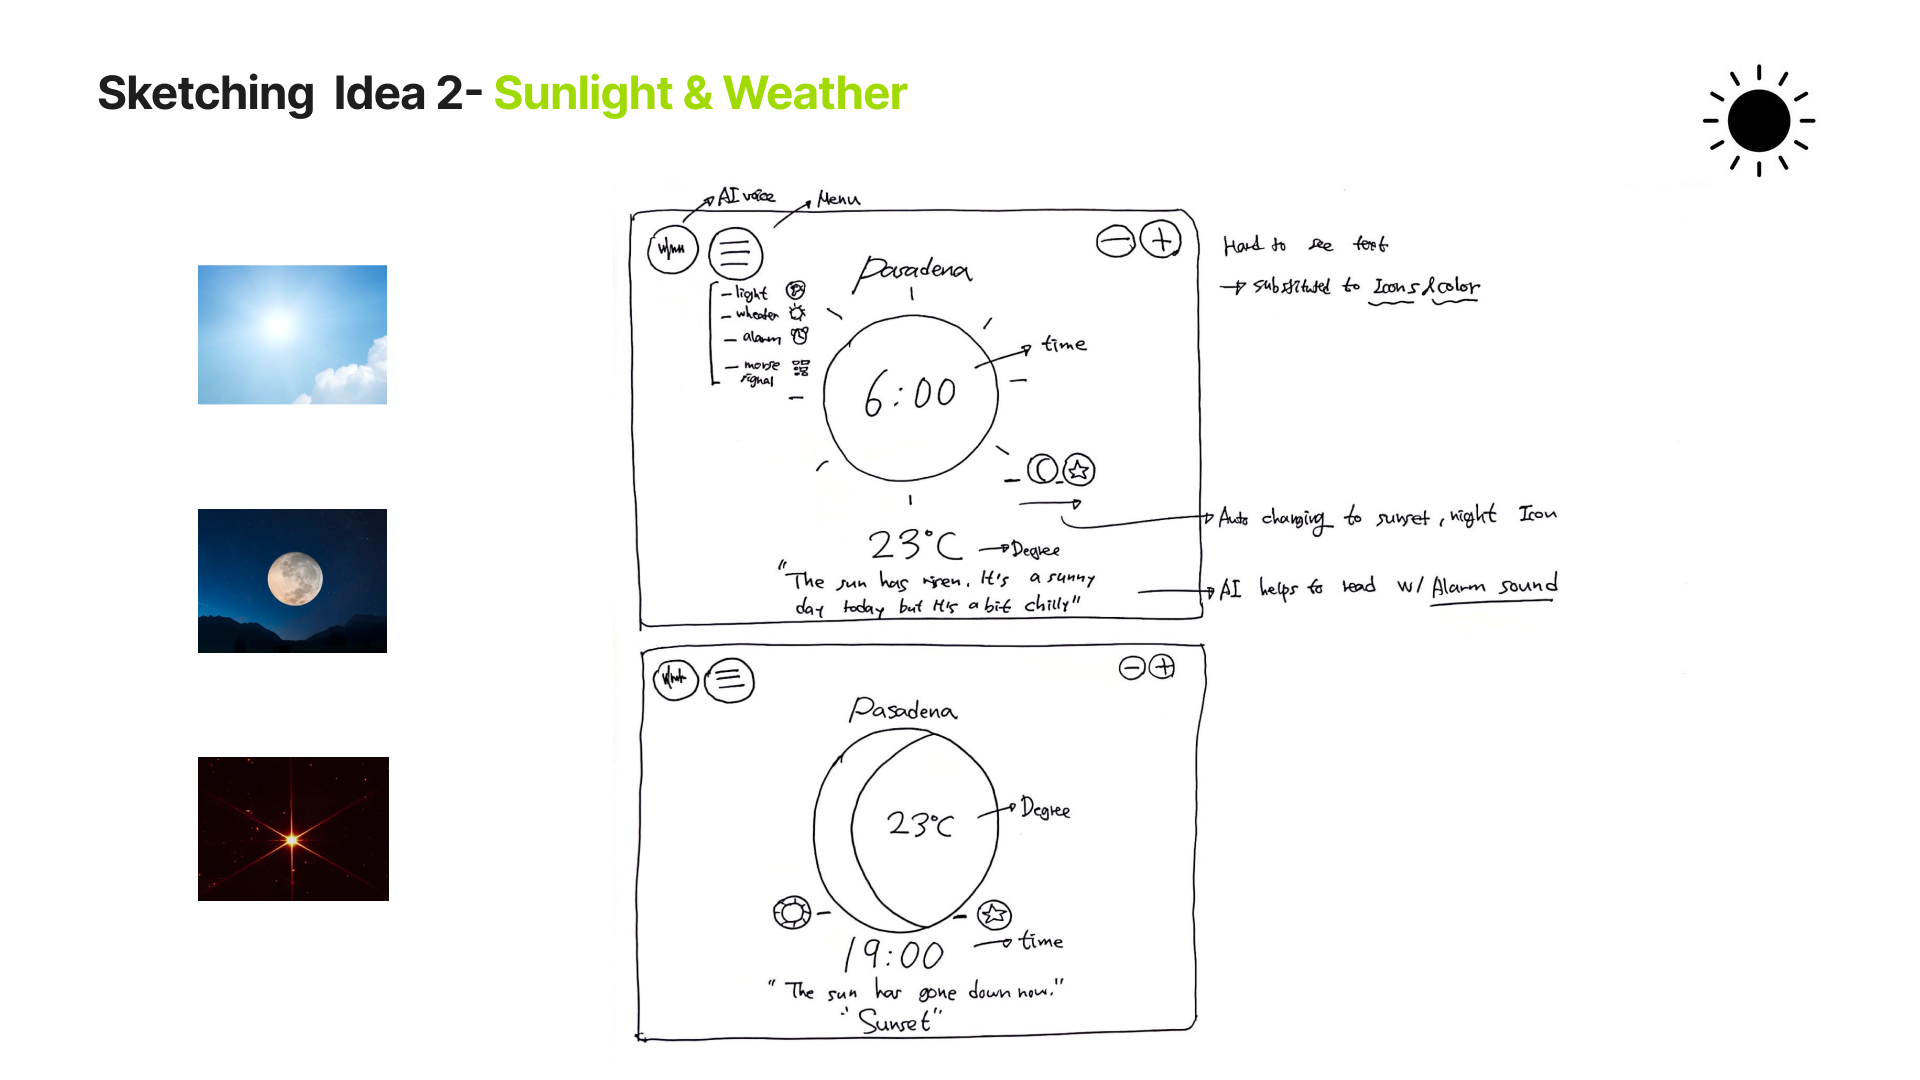 Sketching Idea 2- Sunlight & Weather
AI voice
Menu
Pasadena
- light
- wheater
- alarm
- morse
signal
6:00
time
Hard to see text
→ substituted to Icons & color
23°C → Degree
"The sun has risen. It's a sunny
day today but it's a bit chilly"
Auto changing to sunset, night Icon
AI helps to read w/ Alarm sound
Pasadena
23°C
Degree
19:00
time
"The sun has gone down now."
"Sunset"